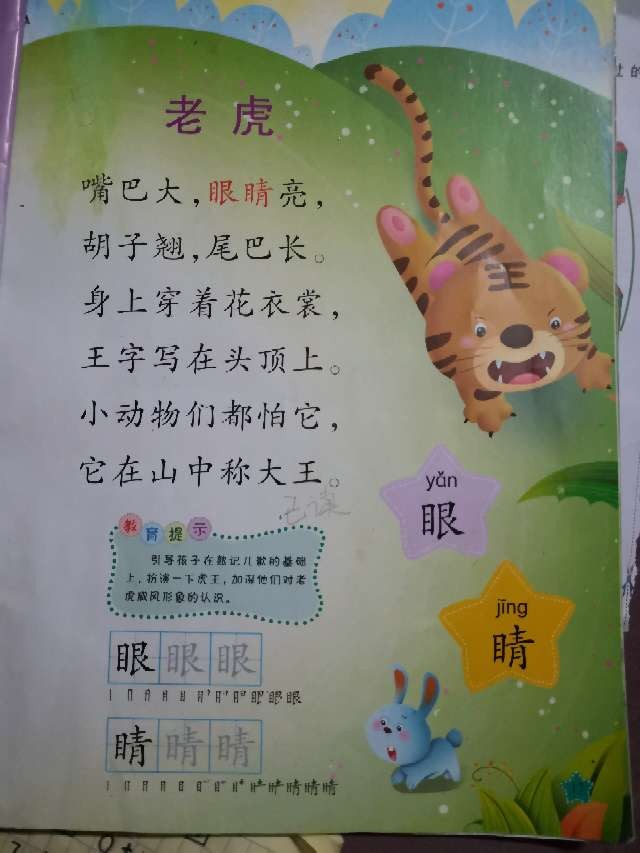 老虎
嘴巴大,眼睛亮,
胡子翘,尾巴长。
身上穿着花衣裳,
王字写在头顶上。
小动物们都怕它,
它在山中称大王。
已读
王
yǎn
眼
jīng
睛
教育提示
引导孩子在熟记儿歌的基础
上,扮演一下虎王,加深他们对老
虎威风形象的认识。
眼眼眼
睛睛睛